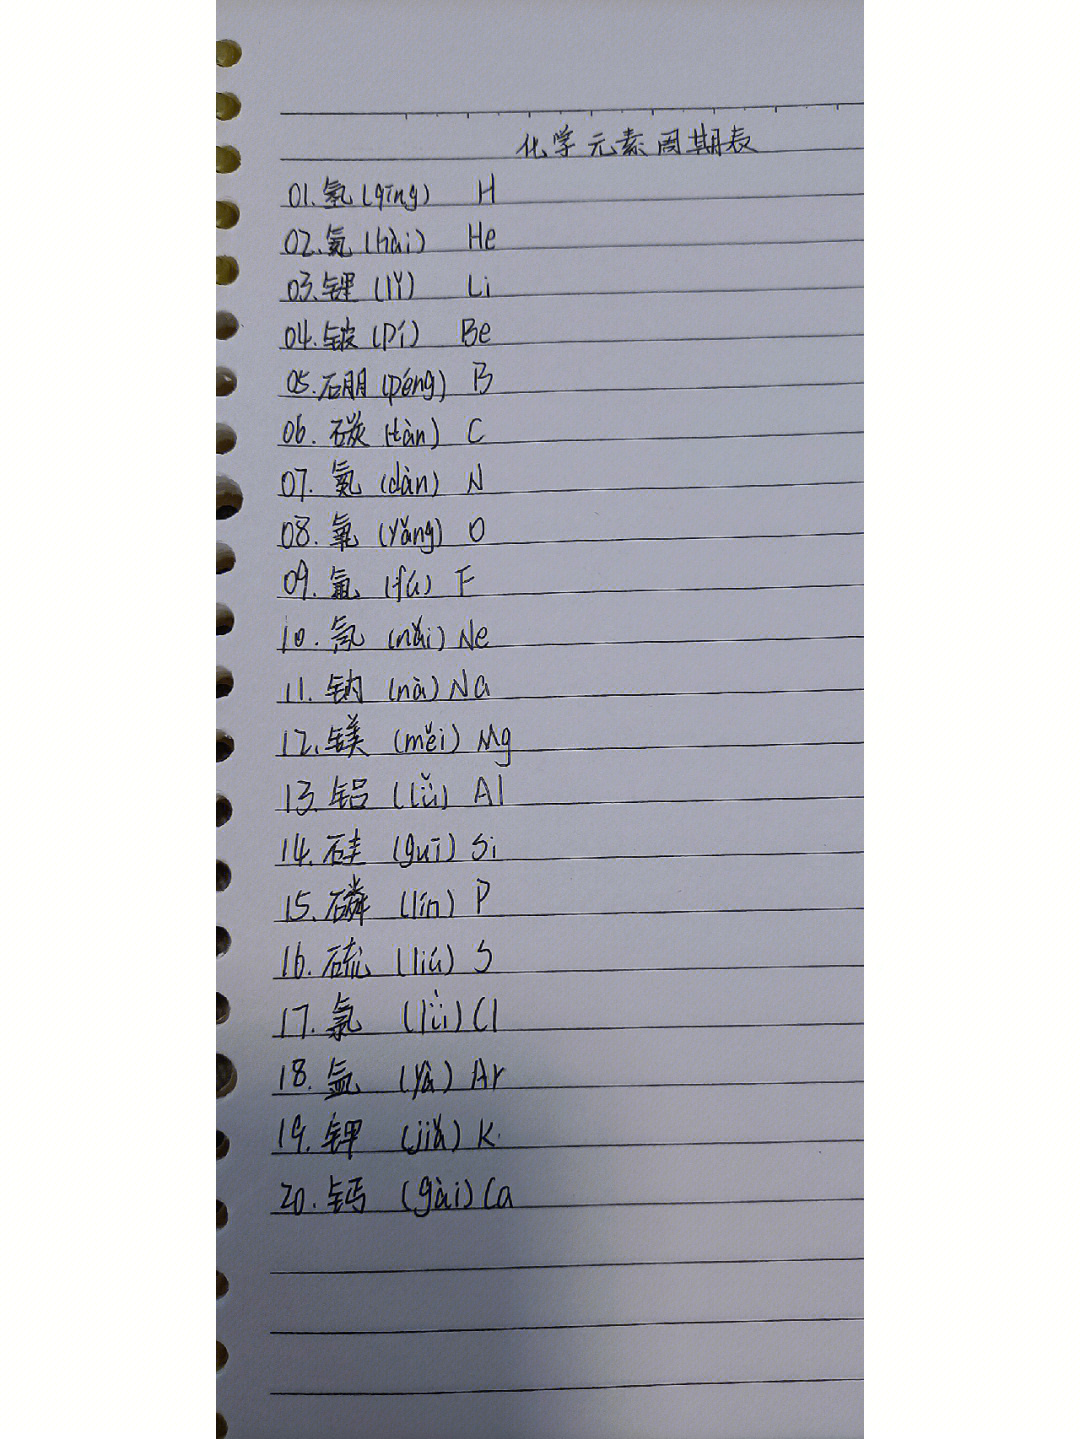 化学元素周期表
01.氢(qīng) H
02.氦(hài) He
03.锂(lǐ) Li
04.铍(pí) Be
05.硼(péng) B
06.碳(tàn) C
07.氮(dàn) N
08.氧(yǎng) O
09.氟(fú) F
10.氖(nǎi) Ne
11.钠(nà) Na
12.镁(měi) Mg
13.铝(lǚ) Al
14.硅(guī) Si
15.磷(lín) P
16.硫(liú) S
17.氯(lǜ) Cl
18.氩(yà) Ar
19.钾(jiǎ) K
20.钙(gài) Ca